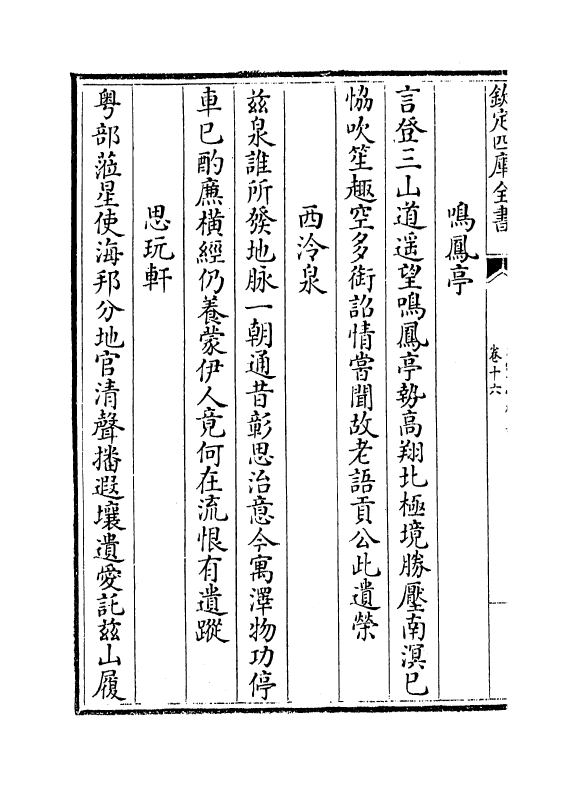 欽定四庫全書
卷十六
鳴鳳亭
言登三山道遥望鳴鳳亭勢高翔北極境勝壓南溟已
恊吹笙趣空多銜詔情嘗聞故老語貢公此遺榮
西泠泉
兹泉誰所發地脉一朝通昔彰思治意今寓澤物功停
車已酌亷横經仍養蒙伊人竟何在流恨有遺蹤
思玩軒
粤部蒞星使海邦分地官清聲播遐壤遺愛託兹山履